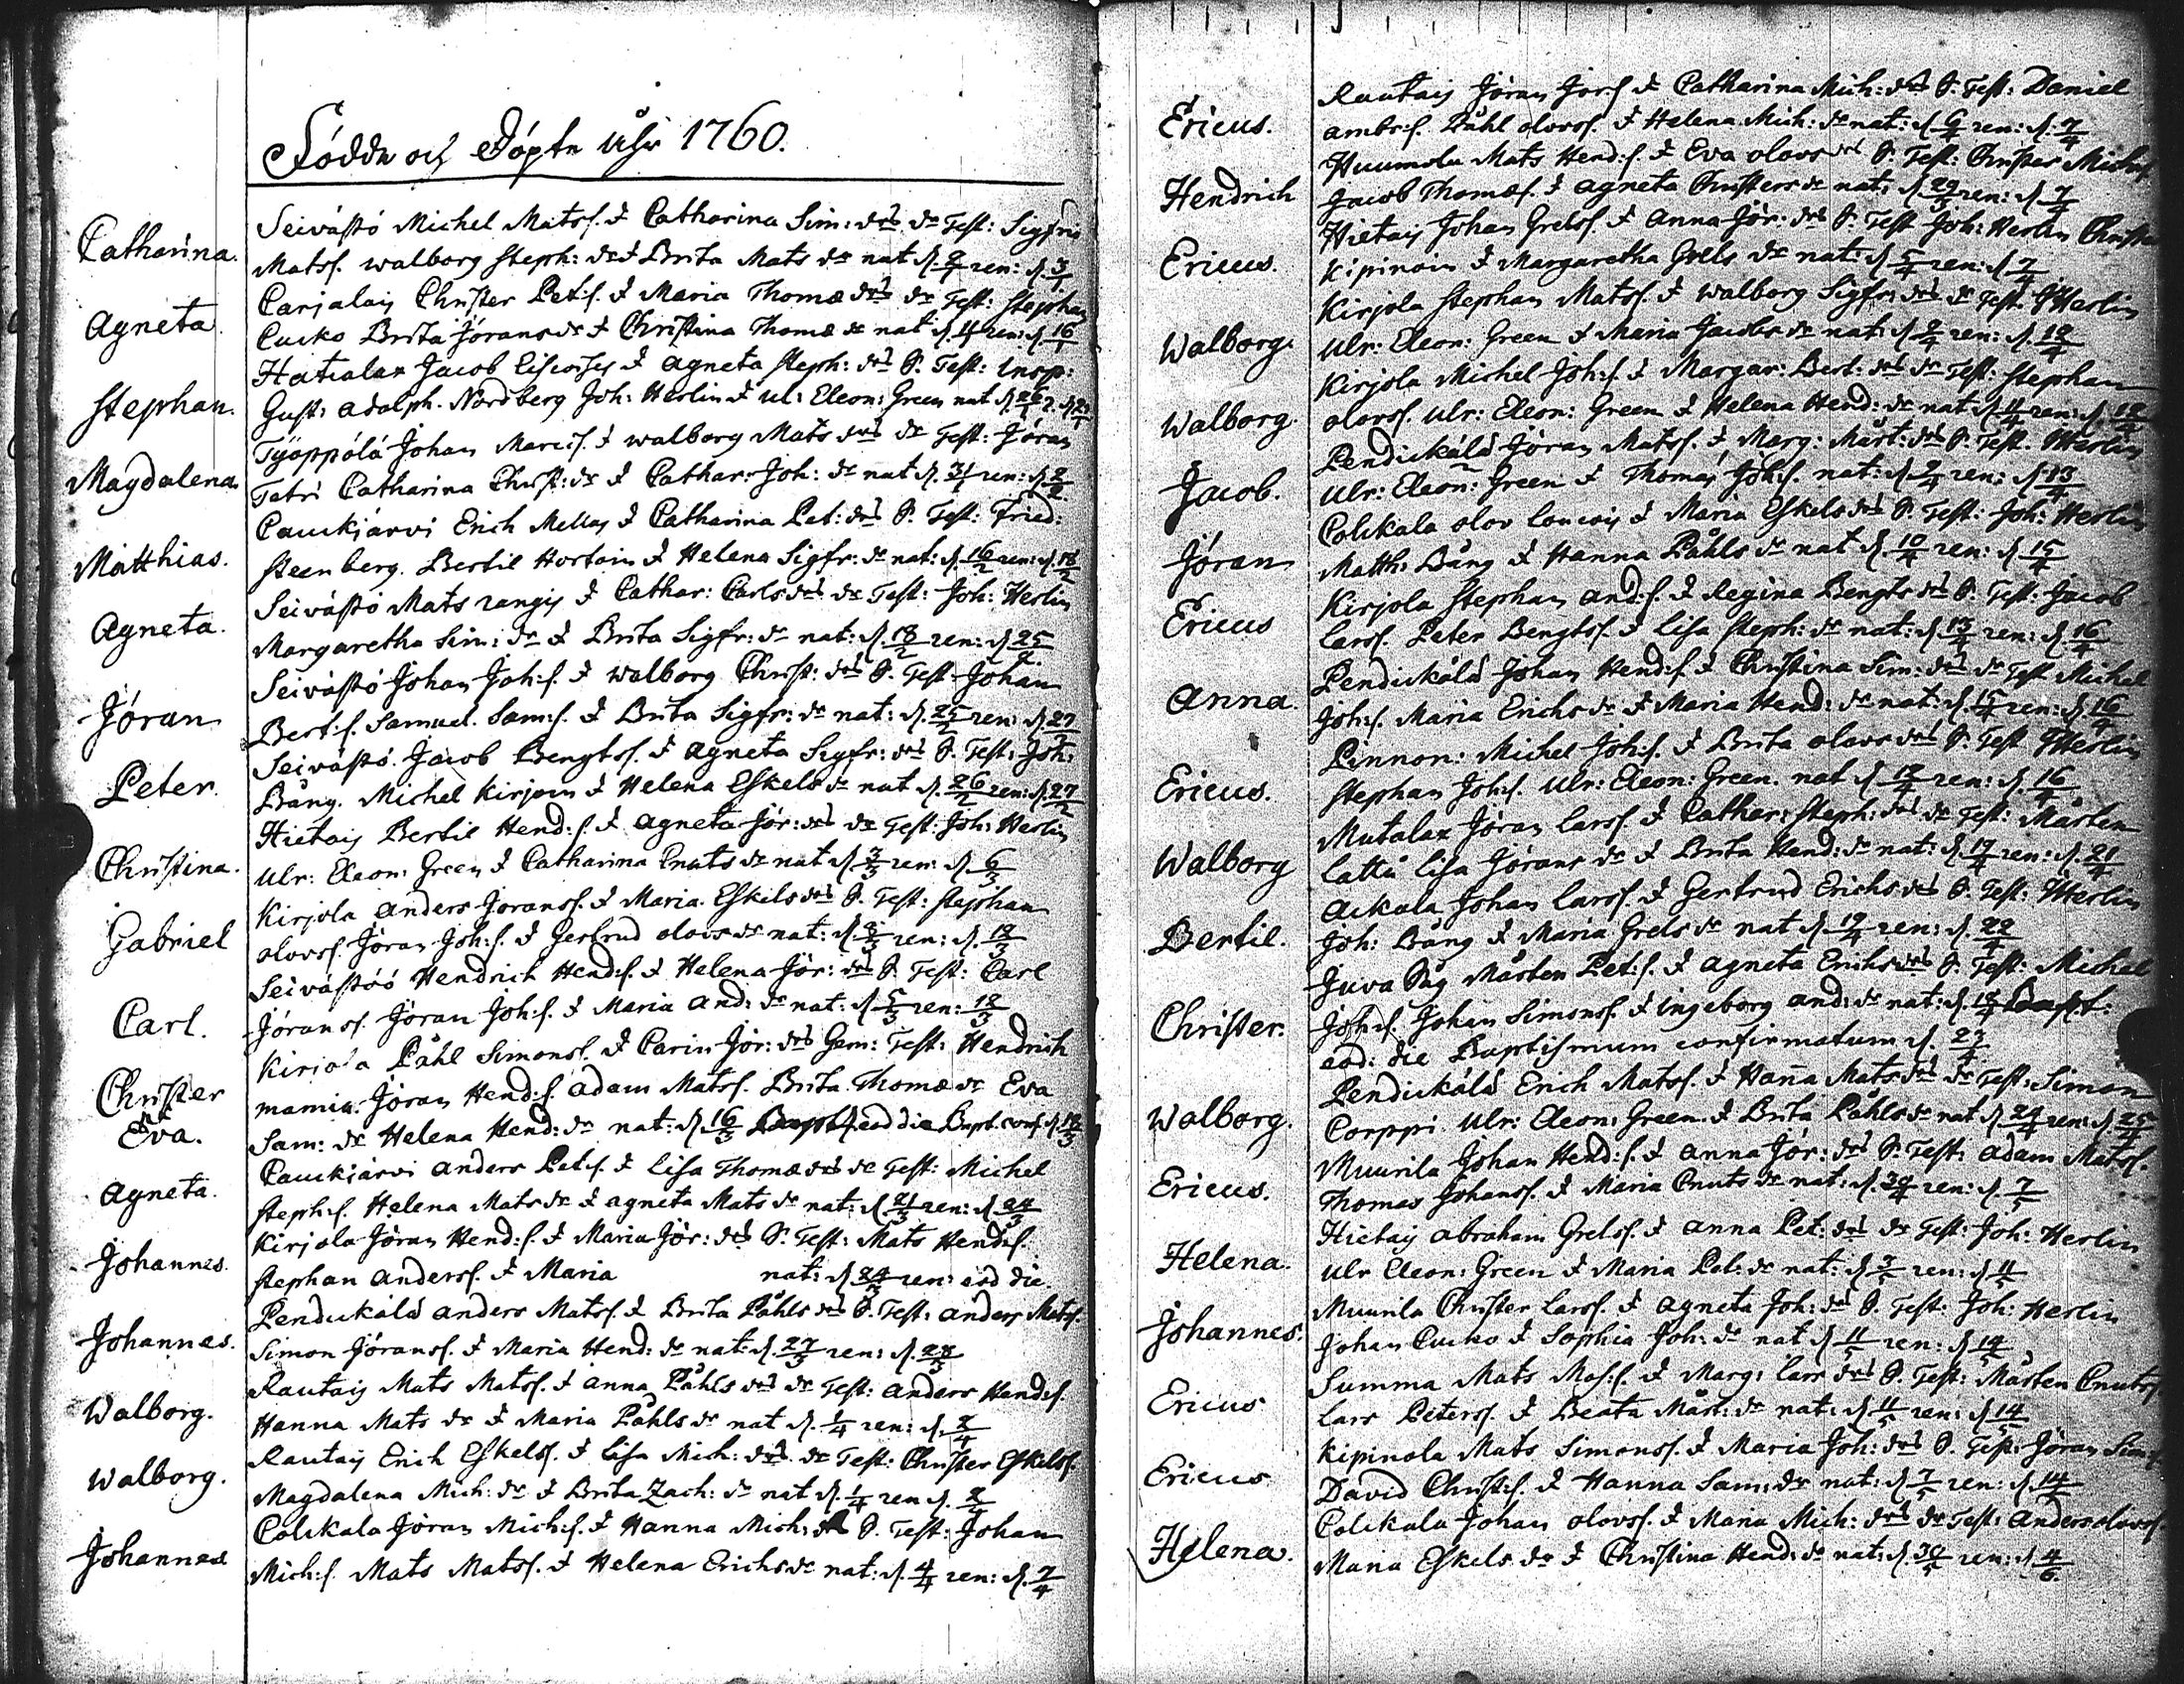 Födde och Döpte Åhr 1760.
Catharina. Seiväștö Michel Matss. & Catharina Sim: drs dr Test: Sigfrid
Matss. Walborg Steph: dr & Brita Mats dr nat d. 2/1 ren: d. 3/1
Agneta. Carjalain Christer Pet:s. & Maria Thomæ drs dr Test: Stephan
Cucko Brita Jörans dr & Christina Thomæ dr nat d. 11/1 ren: d. 16/1
Stephan. Hatialax Jacob & Agneta Steph: drs S. Test: Insp:
Gust: Adolph. Nordberg Joh: Herlin & Ul: Eleon: Green nat d. 26/1
Magdalena. Työppölä Johan Marc:s. & Walborg Mats drs dr Test: Jöran
Tatri Catharina Christ: dr & Cathar: Joh: dr nat d. 31/1 ren: d. 2/2
Matthias. Cauckjärvi Erich Mellas & Catharina Pet: drs S. Test: Fried:
Steenberg. Bertil Hortain & Helena Sigfr: dr nat: d. 16/2 ren: d. 18/2
Agneta. Seivästö Mats rangin & Cathar: Carls drs dr Test: Joh: Herlin
Margaretha Sim: dr & Brita Sigfr: dr nat: d. 18/2 ren: d. 25/2
Jöran Seivästö Johan Joh:s. & Walborg Christ: drs S. Test: Johan
Bert:s. Samuel Sam:s. & Brita Sigfr: dr nat: d. 25/2 ren: d. 27/2
Peter. Seivästö. Jacob Bengtss. & Agneta Sigfr: drs S. Test: Joh:
Bång. Michel Kirjoin & Helena Eskels dr nat d. 26/2 ren: d. 27/2
Christina. Hietain Bertil Hend:s. & Agneta Jör: drs dr Test: Joh: Herlin
Ulr: Eleon: Green & Catharina Cnuts dr nat d. 3/3 ren: d. 6/3
Gabriel Kirjola Anders Joranss. & Maria Eskils drs S. Test: Stephan
olovss. Jöran Joh:s. & Gertrud olovs dr nat: d. 8/3 ren: d. 12/3
Carl. Seivästöö Hendrich Hend:s. & Helena Jör: drs S. Test: Carl
Jöranss. Jöran Joh:s. & Maria And: dr nat: d. 5/3 ren: 12/3
Christer Eva. Kirjola Påhl Simonss. & Carin Jör: drs Gem: Test: Hendrich
mamia. Jöran Hend:s. Adam Matss. Brita Thomæ dr Eva
Sam: dr Helena Hend: dr nat: d. 16/3 Bapt eod die Bapt. conf d. 18/3
Agneta. Cauckjärvi Anders Pet:s. & Lisa Thomæ drs dr Test: Michel
Steph:s. Helena Mats dr & Agneta Mats dr nat: d. 21/3 ren: d. 24/3
Johannes. Kirjola Jöran Hend:s. & Maria Jör: drs S. Test: Mats Hend:s.
Stephan Anderss. & Maria nat: d. 24/3 ren: eod die.
Johannes. Pendickälä Anders Matss. & Brita Påhls drs S. Test: Anders Matss.
Simon Jöranss. & Maria Hend: dr nat: d. 27/3 ren: d. 28/3
Walborg. Rautain Mats Matss. & Anna Påhls drs dr Test: Anders Hend:s.
Hanna Mats dr & Maria Påhls dr nat d. 1/4 ren: d. 2/4
Walborg. Rautain Erich Eskelss. & Lisa Mich: drs dr Test: Christer Eskelss.
Magdalena Mich: dr & Brita Zach: dr nat d. 1/4 ren d. 2/4
Johannes Colckala Jöran Mich:s. & Hanna Mich: drs S. Test: Johan
Mich:s. Mats Matss. & Helena Erichs dr nat: d. 4/4 ren: d. 7/4
Ericus. Rautain Jöran Jörs & Catharina Mich: drs S. Test: Daniel
ambr:s. Påhl olovss. & Helena Mich: dr nat: d. 6/4 ren: d. 7/4
Hendrich Huumola Mats Hend:s. & Eva olovs drs S. Test: Christer Mich:s.
Jacob Thomæs. & Agneta Christers dr nat: d. ren: d. 7/4
Ericus. Hietain Johan Grelss. & Anna Jör: drs S. Test Joh: Herlin Christer
Kipinoin & Margaretha Grels dr nat: d. 5/4 ren: d. 7/4
Walborg. Kirjola Stephan Matss. & Walborg Sigfr: drs dr Test. J Herlin
Ulr: Eleon: Green & Maria Jacobs dr nat: d. ren: d. 12/4
Walborg. Kirjola Michel Joh:s. & Margar: Bert: drs dr Test: Stephan
olovss. Ulr: Eleon: Green & Helena Hend: dr nat d. 11/4 ren: d. 12/4
Jacob. Pendickälä Jöran Matss. & Marg: Mårt: drs S. Test. J Herlin
Ulr: Eleon: Green & Thomas Joh:s. nat: d. ren: d. 13/4
Jöran Colckala olov & Maria Eskels drs S. Test: Joh: Herlin
Matth: Bång & Hanna Påhls dr nat d. 10/4 ren: d. 15/4
Ericus Kirjola Stephan And:s. & Regina Bengts drs S. Test: Jacob
Larss. Peter Bengtss. & Lisa Steph: dr nat: d. 13/4 ren: d. 16/4
Anna. Pendickälä Johan Hend:s. & Christina Sim: drs dr Test Michel
Joh:s. Maria Erichs dr & Maria Hend: dr nat: d. 15/4 ren: d. 16/4
Ericus. Pinnon: Michel Joh:s. & Brita olovs drs S. Test J Herlin
Stephan Joh:s. Ulr: Eleon: Green. nat d. 12/4 ren: d. 16/4
Walborg Mutalax Jöran Larss. & Cathar: Steph: drs dr Test: Mårten
Lattu Lisa Jörans dr & Brita Hend: dr nat: d. 17/4 ren: d. 21/4
Bertil. Ackala Johan Larss. & Gertrud Erichs drs S. Test: J Herlin
Joh: Bång & Maria Grels dr nat d. 19/4 ren: d. 22/4
Christer. Juva Såg Mårten Pet:s. & Agneta Erichs drs S. Test: Michel
Joh:s. Johan Simonss. & Ingeborg And: dr nat: d. 18/4 Bapt:
eod: die Baptismum confirmatum d. 27/4
Walborg. Pendickälä Erich Matss. & Hanna Mats drs dr Test: Simon
Corppi. Ulr: Eleon: Green & Brita Påhls dr nat d. 24/4 ren: d. 25/4
Ericus. Muurila Johan Hend:s. & Anna Jör: drs S. Test: Adam Matss.
Thomas Johanss. & Maria Cnuts dr nat: d. 30/4 ren: d. 7/5
Helena. Hietain Abraham Grelss. & Anna Pet: drs dr Test: Joh: Herlin
Ulr Eleon: Green & Maria Pet: dr nat: d. 3/5 ren: d. 11/5
Johannes. Muurila Christer Larss. & Agneta Joh: drs S. Test: Joh: Herlin
Johan Cucko & Sophia Joh: dr nat d. 11/5 ren: d. 14/5
Ericus Summa Mats Mat:s. & Marg: Lars drs S. Test: Mårten Cnutss.
Lars Peterss. & Beata Mårt: dr nat: d. 11/5 ren: d. 14/5
Ericus Kipinola Mats Simonss. & Maria Joh: drs S. Test: Jöran Sim:s.
David Christ:s. & Hanna Sam: dr nat: d. 7/5 ren: d. 14/5
Helena. Colckala Johan olovss. & Maria Mich: drs dr Test: Anders olovss.
Maria Eskels dr & Christina Hend: dr nat: d. 30/5 ren: d. 4/6.